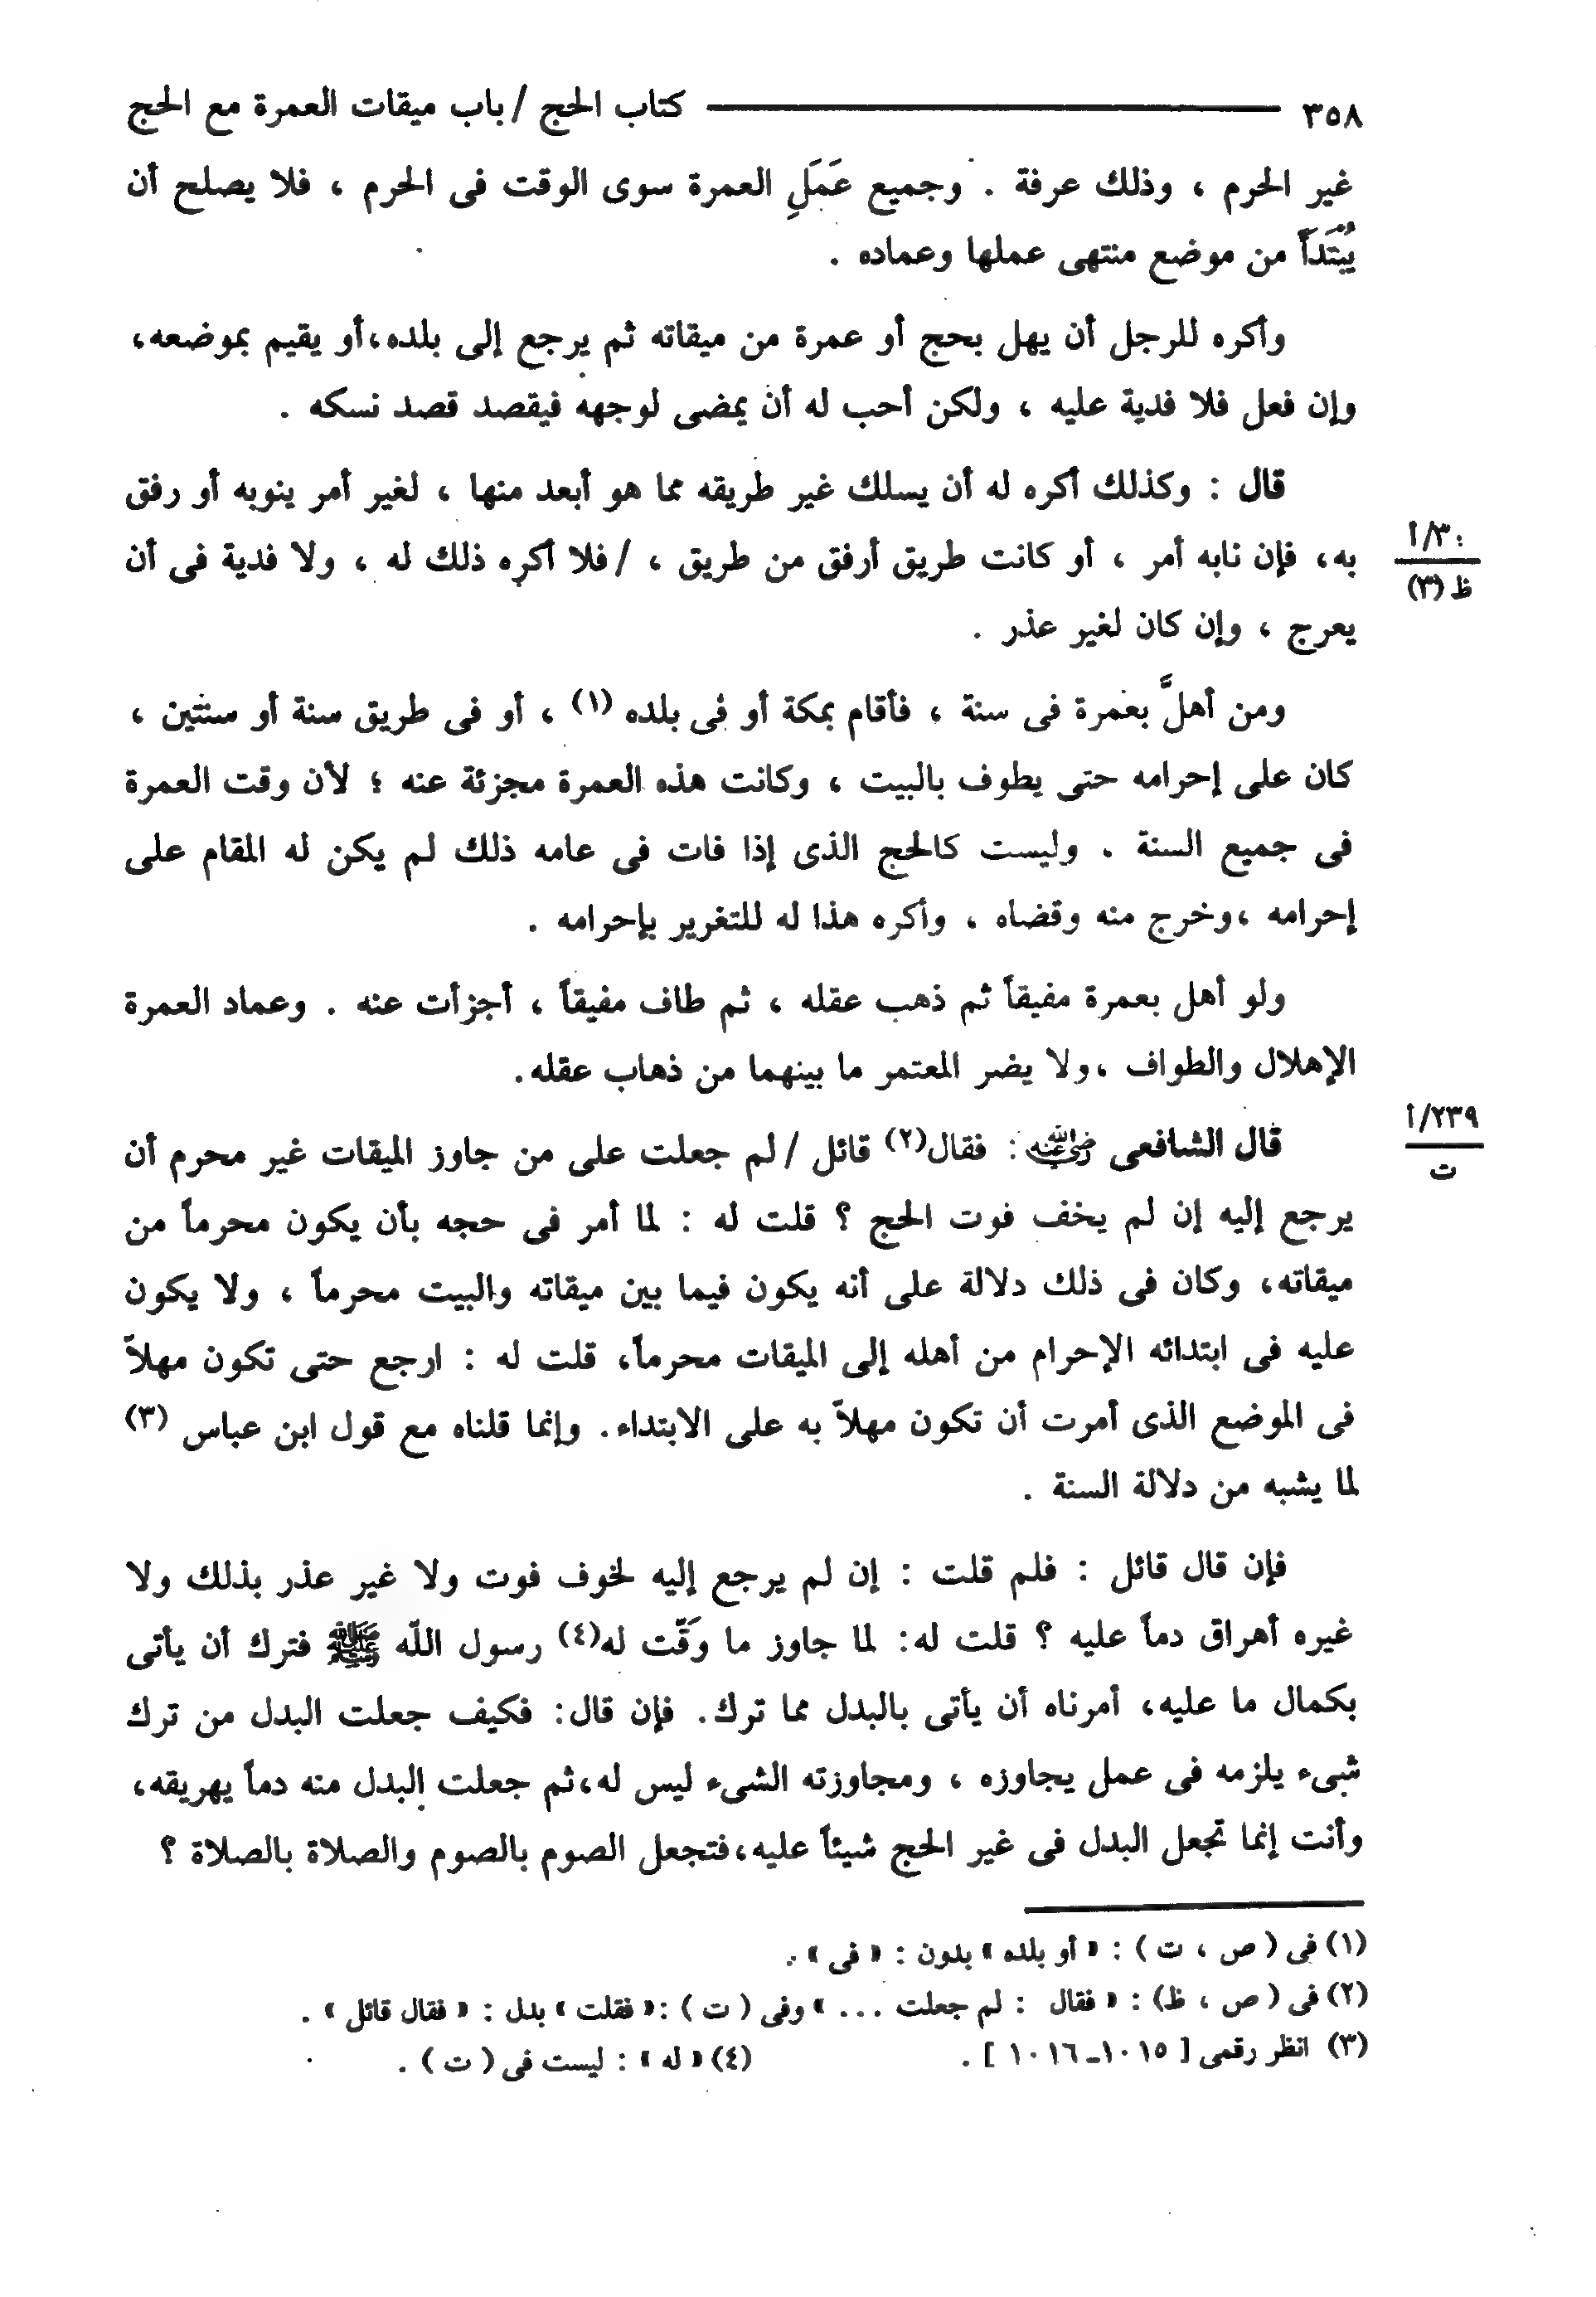 ٣٥٨ كتاب الحج / باب ميقات العمرة مع الحج
غير الحرم ، وذلك عرفة . وجميع عَمَلِ العمرة سوى الوقت فى الحرم ، فلا يصلح أن
يُبْتَدَأ من موضع منتهى عملها وعماده .
وأكره للرجل أن يهل بحج أو عمرة من ميقاته ثم يرجع إلى بلده،أو يقيم بموضعه،
وإن فعل فلا فدية عليه ، ولكن أحب له أن يمضى لوجهه فيقصد قصد نسكه .
قال : وكذلك أكره له أن يسلك غير طريقه مما هو أبعد منها ، لغير أمر ينوبه أو رفق
به، فإن نابه أمر ، أو كانت طريق أرفق من طريق ، /فلا أكره ذلك له ، ولا فدية فى أن
٣٠/أ
ظ (٣)
يعرج ، وإن كان لغير عذر .
ومن أهلَّ بعمرة فى سنة ، فأقام بمكة أو فى بلده (١) ، أو فى طريق سنة أو سنتين ،
كان على إحرامه حتى يطوف بالبيت ، وكانت هذه العمرة مجزئة عنه ؛ لأن وقت العمرة
فى جميع السنة . وليست كالحج الذى إذا فات فى عامه ذلك لم يكن له المقام على
إحرامه ،وخرج منه وقضاه ، وأكره هذا له للتغرير بإحرامه .
ولو أهل بعمرة مفيقاً ثم ذهب عقله ، ثم طاف مفيقاً ، أجزأت عنه . وعماد العمرة
الإهلال والطواف ،ولا يضر المعتمر ما بينهما من ذهاب عقله.
قال الشافعى رضي الله عنه : فقال(٢) قائل /لم جعلت على من جاوز الميقات غير محرم أن
٢٣٩/أ
ت
يرجع إليه إن لم يخف فوت الحج ؟ قلت له : لما أمر فى حجه بأن يكون محرماً من
ميقاته، وكان فى ذلك دلالة على أنه يكون فيما بين ميقاته والبيت محرماً ، ولا يكون
عليه فى ابتدائه الإحرام من أهله إلى الميقات محرماً، قلت له : ارجع حتى تكون مهلاً
فى الموضع الذى أمرت أن تكون مهلاً به على الابتداء. وإنما قلناه مع قول ابن عباس (٣)
لما يشبه من دلالة السنة .
فإن قال قائل : فلم قلت : إن لم يرجع إليه لخوف فوت ولا غير عذر بذلك ولا
غيره أهراق دماً عليه ؟ قلت له: لما جاوز ما وَقَّت له(٤) رسول اللّه ﷺ فترك أن يأتى
بكمال ما عليه، أمرناه أن يأتى بالبدل مما ترك. فإن قال: فكيف جعلت البدل من ترك
شىء يلزمه فى عمل يجاوزه ، ومجاوزته الشىء ليس له،ثم جعلت البدل منه دماً يهريقه،
وأنت إنما تجعل البدل فى غير الحج شيئاً عليه،فتجعل الصوم بالصوم والصلاة بالصلاة ؟
(١) فى ( ص ، ت ) : « أو بلده » بدون : « فى » .
(٢) فى ( ص ، ظ) : « فقال : لم جعلت ... » وفى ( ت ) :« فقلت » بدل : « فقال قائل » .
(٣) انظر رقمى [ ١٠١٥ـ ١٠١٦ ] . (٤) « له » : ليست فى ( ت ) .